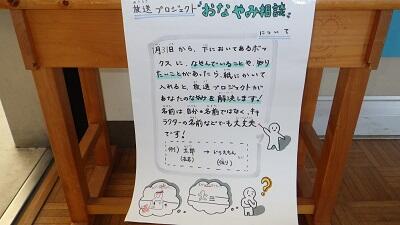 放送プロジェクト
"おなやみ相談"
について
1月31日から、下においてあるボッ
クスに、なやんでいることや、知り
たいことがあったら、紙にかいて
入れると、放送プロジェクトが
あなたのなやみを解決します!
名前は自分の名前ではなく、キャ
ラクターの名前などでも大丈夫
です!
例) 太郎 →
(本名)